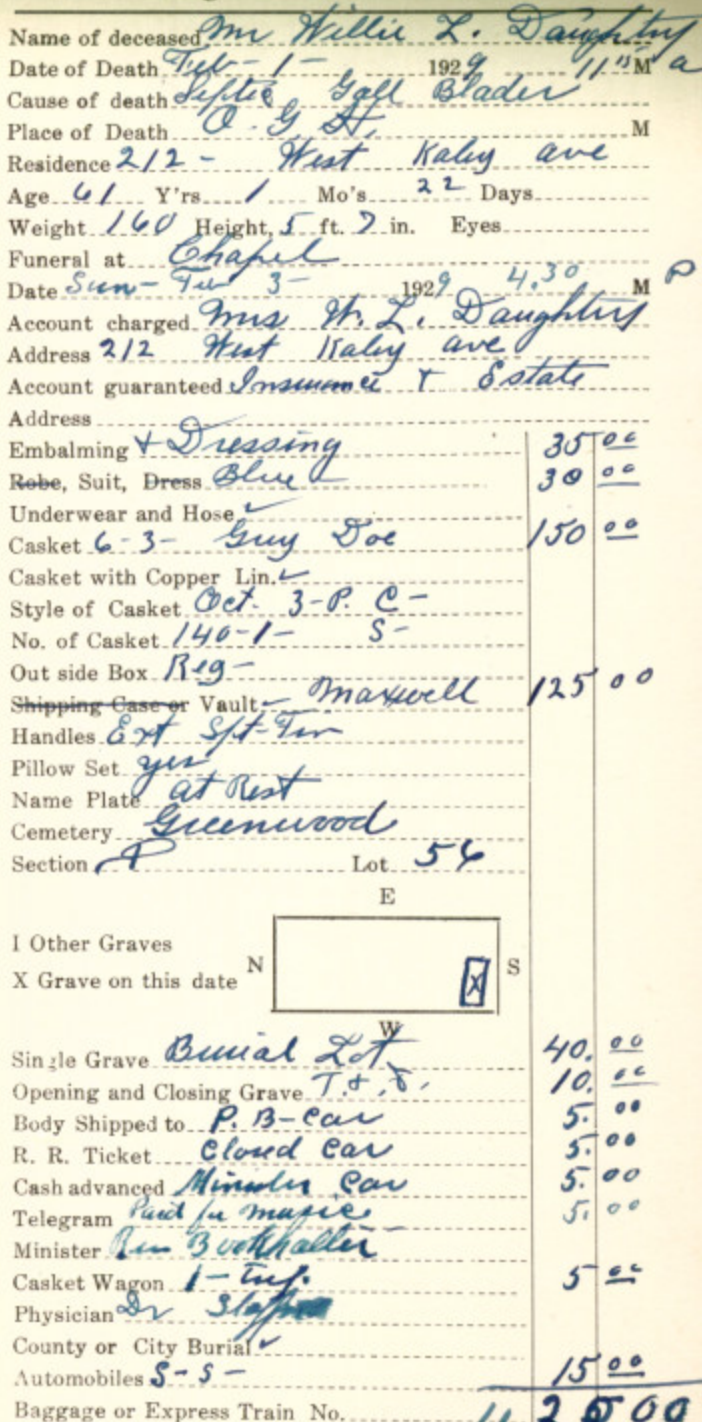 Name of deceased Mr Willie L. Daughtry
Date of Death Feb - 1 - 1929 11 15 M a
Cause of death Septic Gall Blader
Place of Death O. G. H. M
Residence 212 - West Kaley ave
Age 61 Y'rs 1 Mo's 22 Days
Weight 160 Height, 5 ft. 7 in. Eyes
Funeral at Chapel
Date Sun - Feb 3 - 1929 4.30 M P
Account charged Mrs W. L. Daughtry
Address 212 West Kaley ave
Account guaranteed Insurance & Estate
Address
Embalming & Dressing 35 00
Robe, Suit, Dress Blue 30 00
Underwear and Hose ✓
Casket 6-3- Grey Doe 150 00
Casket with Copper Lin. ✓
Style of Casket Oct. 3-P. C-
No. of Casket 140-1- S-
Out side Box Reg -
Shipping Case or Vault - Maxwell 125 00
Handles Ext
Pillow Set yes
Name Plate at Rest
Cemetery Greenwood
Section Lot 56
E
I Other Graves
N S
X Grave on this date X
W
Single Grave Burial Lot 40. 00
Opening and Closing Grave T. & 10. 00
Body Shipped to P. B-Car 5. 00
R. R. Ticket Closed Car 5. 00
Cash advanced Minister Car 5. 00
Telegram Paid for music 5. 00
Minister Rev Bookhalter
Casket Wagon 1- 5 00
Physician Dr
County or City Burial ✓
Automobiles S-S- 15 00
Baggage or Express Train No. 25 00